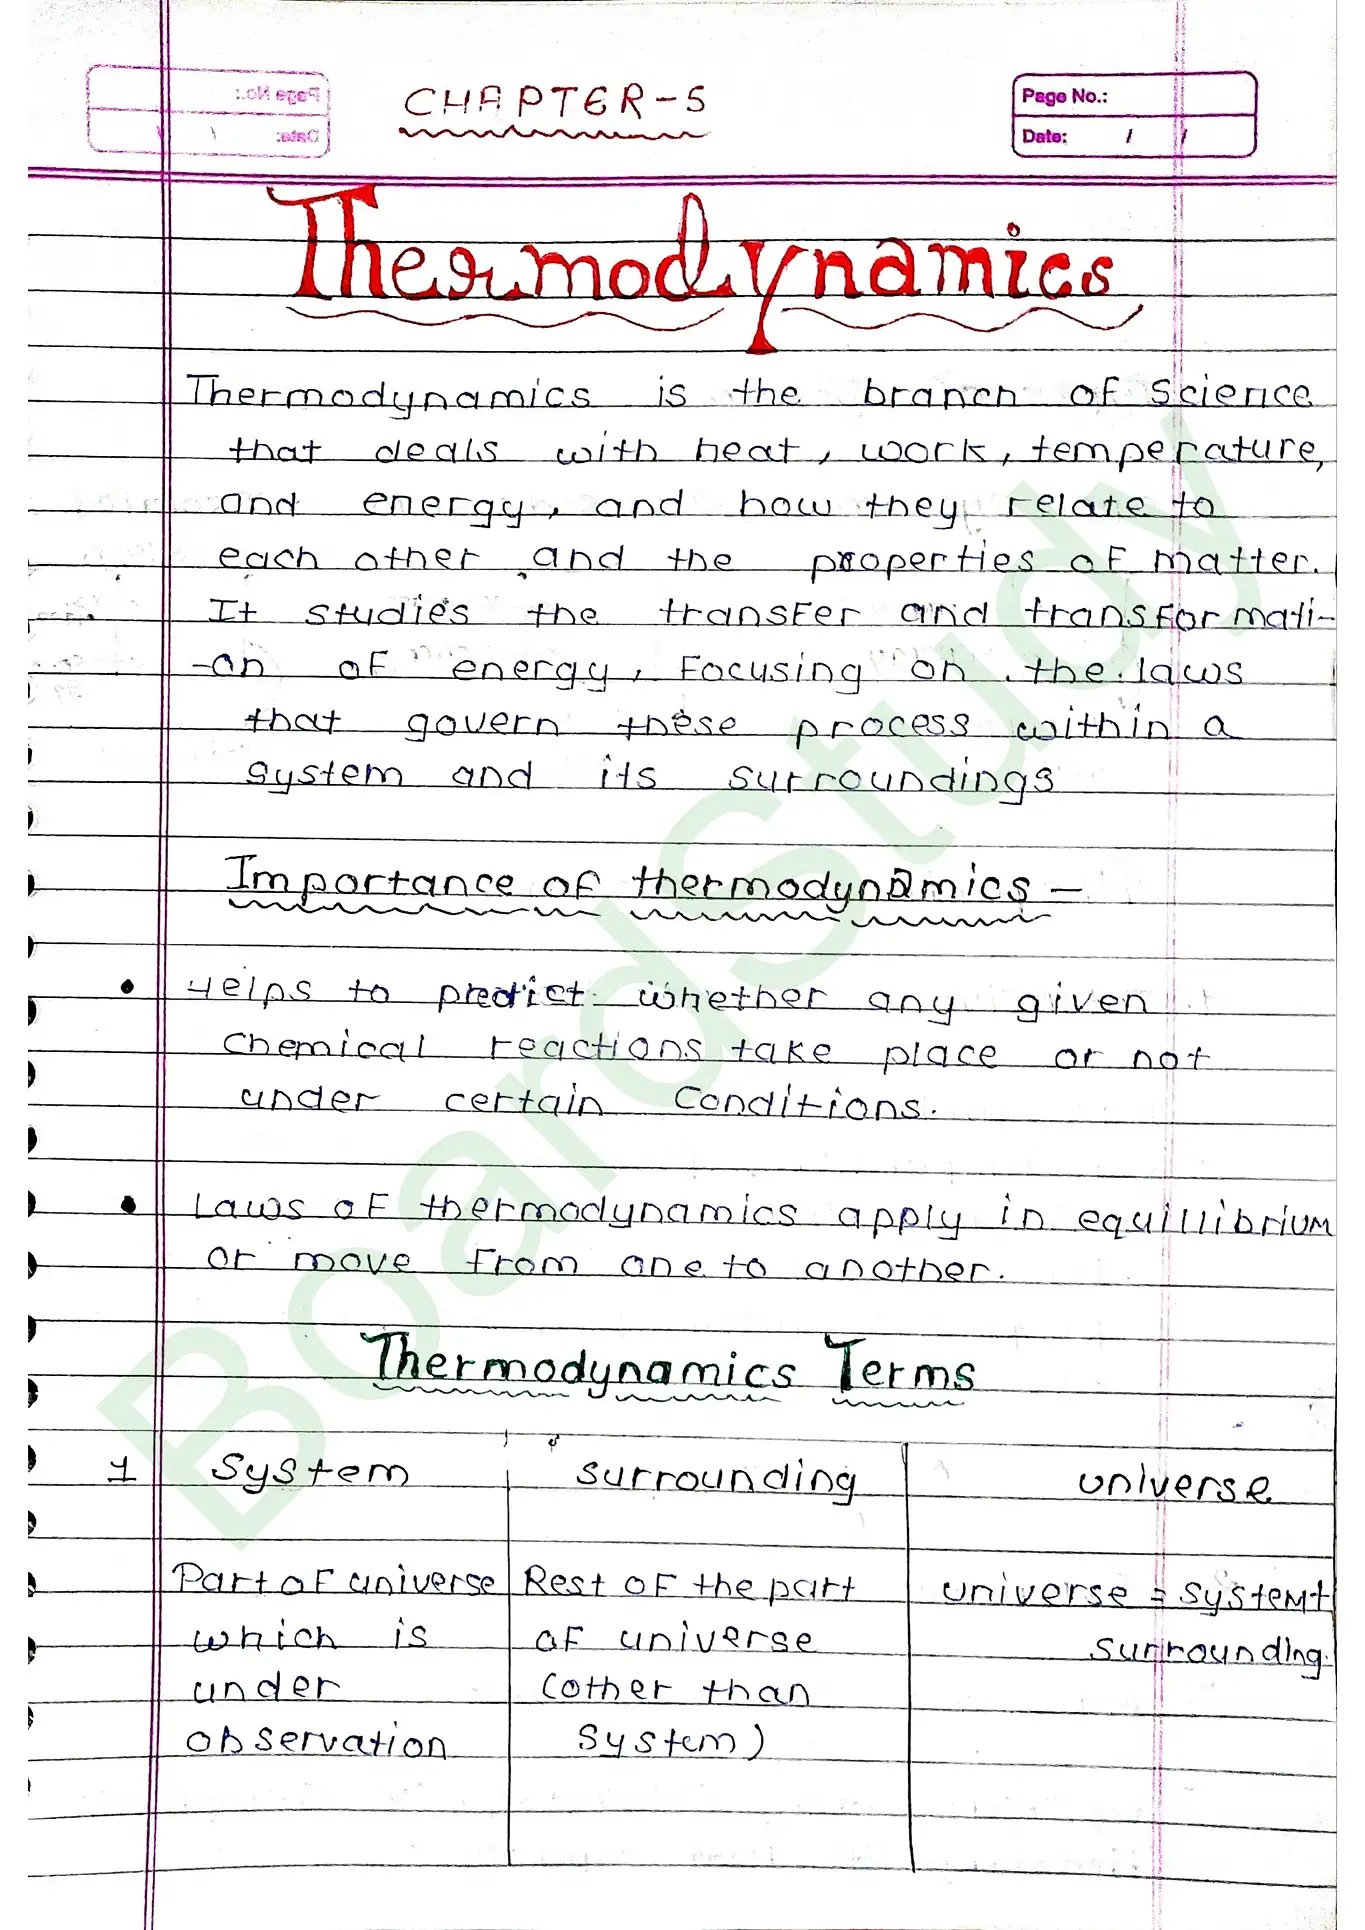 CHAPTER-5
Page No.:
Date: / /
Thermodynamics
Thermodynamics is the branch of Science
that deals with heat, work, temperature,
and energy, and how they relate to
each other and the properties of matter.
It studies the transfer and transformati-
-on of energy, Focusing on the laws
that govern these process within a
system and its surroundings
Importance of thermodynamics -
• Helps to predict whether any given
Chemical reactions take place or not
under certain Conditions.
• Laws of thermodynamics apply in equillibrium
or move from one to another.
Thermodynamics Terms
1 System surrounding universe
Part of universe Rest of the part universe = system+
which is of universe surrounding.
under (other than
observation system)
BoardStudy